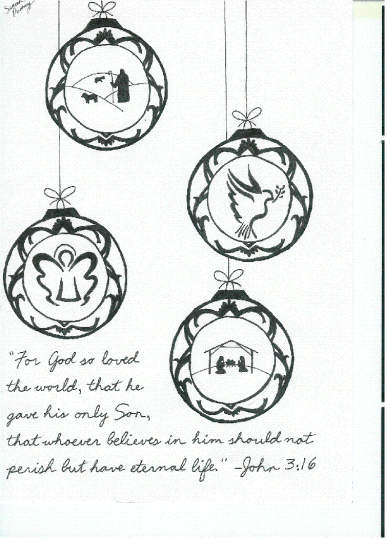 Susan
"For God so loved
the world, that he
gave his only Son,
that whoever believes in him should not
perish but have eternal life." -John 3:16